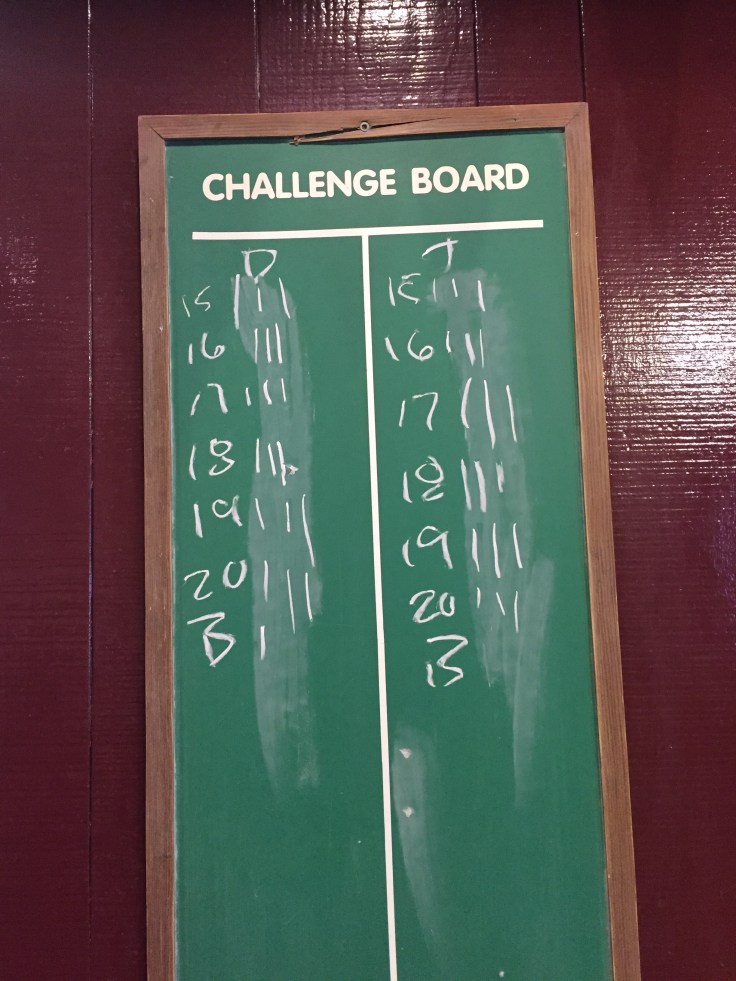 CHALLENGE BOARD
D
15 |||
16 |||
17 |||
18 |||
19 |||
20 |||
B |
J
15 |||
16 |||
17 |||
18 |||
19 |||
20 |||
B